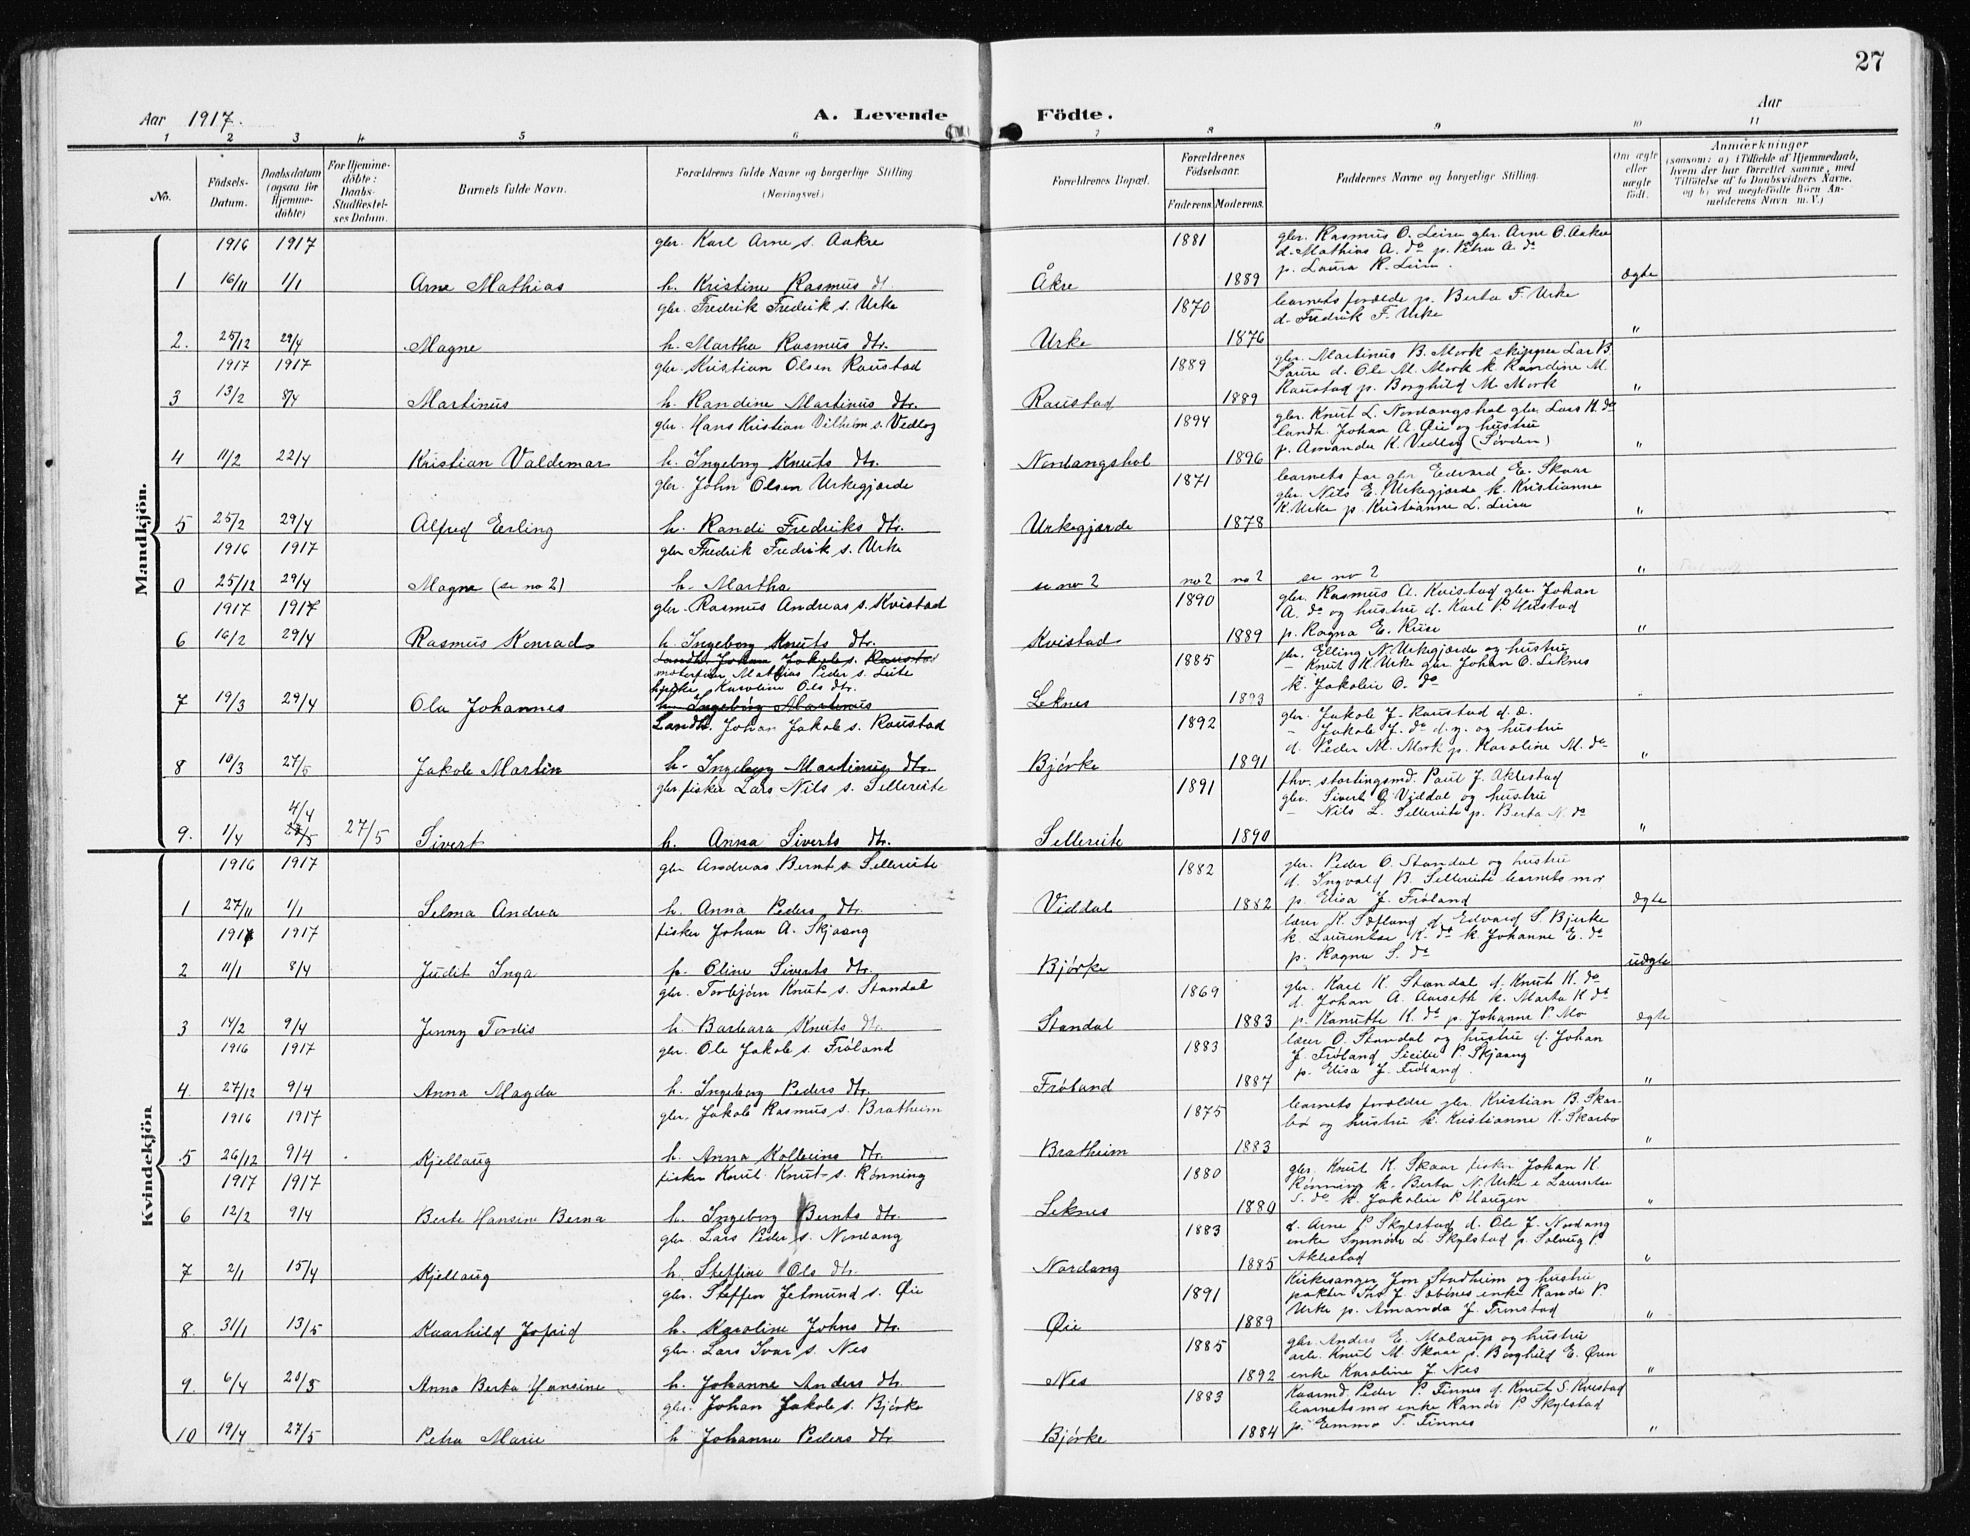 27
Aar 1917.
A. Levende Födte.
Aar
1 2 3 4 5 6 7 8 9 10 11
No.
Födsels-Datum.
Daabsdatum (ogsaa for Hjemmedöbte)
For Hjemmedöbte: Daabs-Stadfæstelses Datum.
Barnets fulde Navn.
Forældrenes fulde Navne og borgerlige Stilling (Næringsvei)
Forældrenes Bopæl.
Forældrenes Födselsaar.
Faderens. Moderens.
Faddernes Navne og borgerlige Stilling.
Om ægte eller uægte födt.
Anmærkninger
(saasom: a) i Tilfælde af Hjemmedaab, hvem der har forrettet samme, med Tilföielse af to Daabsvidners Navne, og b) ved uægtefödte Börn Anmelderens Navn m. V.)
Mandkjön.
1916 1917 gbr. Karl Arne s. Aakre 1881 gbr. Rasmus O. Leira gbr. Arne O. Aakre
d. Mathias A. do p. Petra A. do
1 16/11 1/1 Arne Mathias h. Kristine Rasmus dt. Åkre 1889 p. Laura R. Leira. ægte
gbr. Fredrik Fredrik s. Urke 1870 barnets forælde p. Berta F. Urke
d. Fredrik F. Urke
2. 25/12 29/4 Magne h. Martha Rasmus dtr. Urke 1876 "
1917 1917 gbr. Kristian Olsen Raustad 1889 gbr. Martinus B. Mork skipper Lar B.
Saure d. Ole M. Mork k. Randine M.
3 13/2 8/4 Martinus h. Randine Martinus dtr. Raustad 1889 Raustad p. Borghild M. Mork "
gbr. Hans Kristian Vilhelm s. Vedlog 1894 gbr. Knut L. Nordangshol gbr. Lars K. do
landh. Johan A. Øie og hustru
4 11/2 22/4 Kristian Valdemar h. Ingeborg Knuts dtr. Nordangshol 1896 p. Amanda K. Vedlog "
gbr. John Olsen Urkegjærde 1871 barnets far gbr. Edvard E. Skaar
gbr. Nils E. Urkegjærde k. Kristianne
5 25/2 29/4 Alfred Erling h. Randi Fredriks dtr. Urkegjærde 1878 K. Urke p. Kristianne L. Leira "
1916 1917 gbr Fredrik Fredrik s. Urke
0 25/12 29/4 Magne (se no 2) h. Martha se no 2 no 2 no 2 se no 2 "
1917 1917 gbr. Rasmus Andreas s. Kvistad 1890 gbr. Rasmus A. Kvistad gbr. Johan
A. do og hustru d. Karl P. Urstad
6 16/2 29/4 Rasmus Konrad h. Ingeborg Knuts dtr. Kvistad 1889 p. Ragna E. Riise "
Landh. Johan Jakob s. Raustad 1885 gbr. Elling N. Urkegjærde og hustru
Mathias Peder s. Leite - Knut K. Urke Johan O. Leknes
Karoline Ols dtr. k. Jakolie O. do
7 19/3 29/4 Ola Johannes h. Ingeborg Martinus Leknes 1893 "
Landh. Johan Jakob s. Raustad 1892 gbr. Jakob J. Raustad d. æ.
- Jakob J. do d. y. og hustru
8 10/3 27/5 Jakob Martin h. Ingeborg Martinus dtr. Bjørke 1891 d. Peder M. Mork p. Karoline M. do "
gbr. fisker Lars Nils s. Sellereite 1891 fhv. stortingsmd. Paul J. Aklestad
4/4 gbr. Sivert Viddal og hustru
9. 1/4 27/5 27/5 Sivert h. Anna Siverts dtr. Sellereite 1890 - Nils L. Sellereite p. Berta N. do "
Kvindekjön
1916 1917 gbr Andreas Bernt s. Sellereite 1882 gbr. Peder O. Standal og hustru
d. Ingvald B. Sellereite barnets mor
1 27/11 1/1 Selma Andrea h. Anna Peders dtr. Viddal 1882 p. Elisa J. Frøland ægte
1917 1917 fisker Johan A. Skjaang lærer K. Sæfland d. Edvard S. Bjerke
k. Laurentse K. do k. Johanne E. do
2 11/1 8/4 Judit Inga p. Oline Siverts dtr. Bjørke p. Ragna S. do uægte
gbr. Torbjørn Knut s. Standal 1869 gbr. Karl K. Standal d. Knut K. do
d. Johan A. Aarseth k. Marta K. do
3 14/2 9/4 Jenny Tordis h. Barbara Knuts dtr. Standal 1883 p. Kanutte K. do p. Johanne P. Mo ægte
1916 1917 gbr. Ole Jakob s. Frøland 1883 lærer O. Standal og hustru d. Johan
J. Frøland Sicilie P. Skjaang
4. 27/12 9/4 Anna Magda h. Ingeborg Peders dtr. Frøland 1887 p. Elisa J. Frøland. "
1916 1917 gbr. Jakob Rasmus s. Bratheim 1875 barnets forældre gbr. Kristian B. Skar-
bø og hustru k. Kristianne K. Skarbø
5 26/12 9/4 Kjellaug h. Anna Kolbeins dtr. Bratheim 1883 "
1917 1917 fisker Knut Knut s. Rønning 1880 gbr. Knut K. Skaar fisker Johan K.
Rønning k. Berta N. Urke e Laurentse
6 12/2 9/4 Berte Hansine Berna h. Ingeborg Bernts dtr. Leknes 1880 S. do k. Jakolie P. Haugen. "
gbr. Lars Peder s. Nordang 1883 d. Arne P. Skylstad d. Ole J. Nordang
enke Synnøve L. Skylstad p. Solveig P.
7 2/1 15/4 Kjellaug h. Steffine Ols dtr. Nordang 1885 Aklestad "
gbr. Steffen Jetmund s. Øie 1891 Kirkesanger Jon Stadheim og hustru
pakter J. Sæbønes enke Randi P.
8. 31/1 13/5 Kaarhild Jofrid h. Karoline Johns dtr. Øie 1889 Urke p. Amanda J. Finstad "
gbr. Lars Ivar s. Nes 1885 gbr. Anders E. Molaup og hustru
arb. Knut M. Skaar p. Borghild E. Øren
9. 6/4 20/5 Anna Berta Hansine h. Johanne Anders dtr. Nes 1892 enke Karoline J. Nes "
gbr. Johan Jakob s. Bjørke 1883 Kaarmd. Peder P. Finnes d. Knut S. Kvistad
barnets mor enke Randi P. Skylstad
10 19/4 27/5 Petra Marie h Johanne Peders dtr Bjørke 1884 p. Emma T. Finnes "